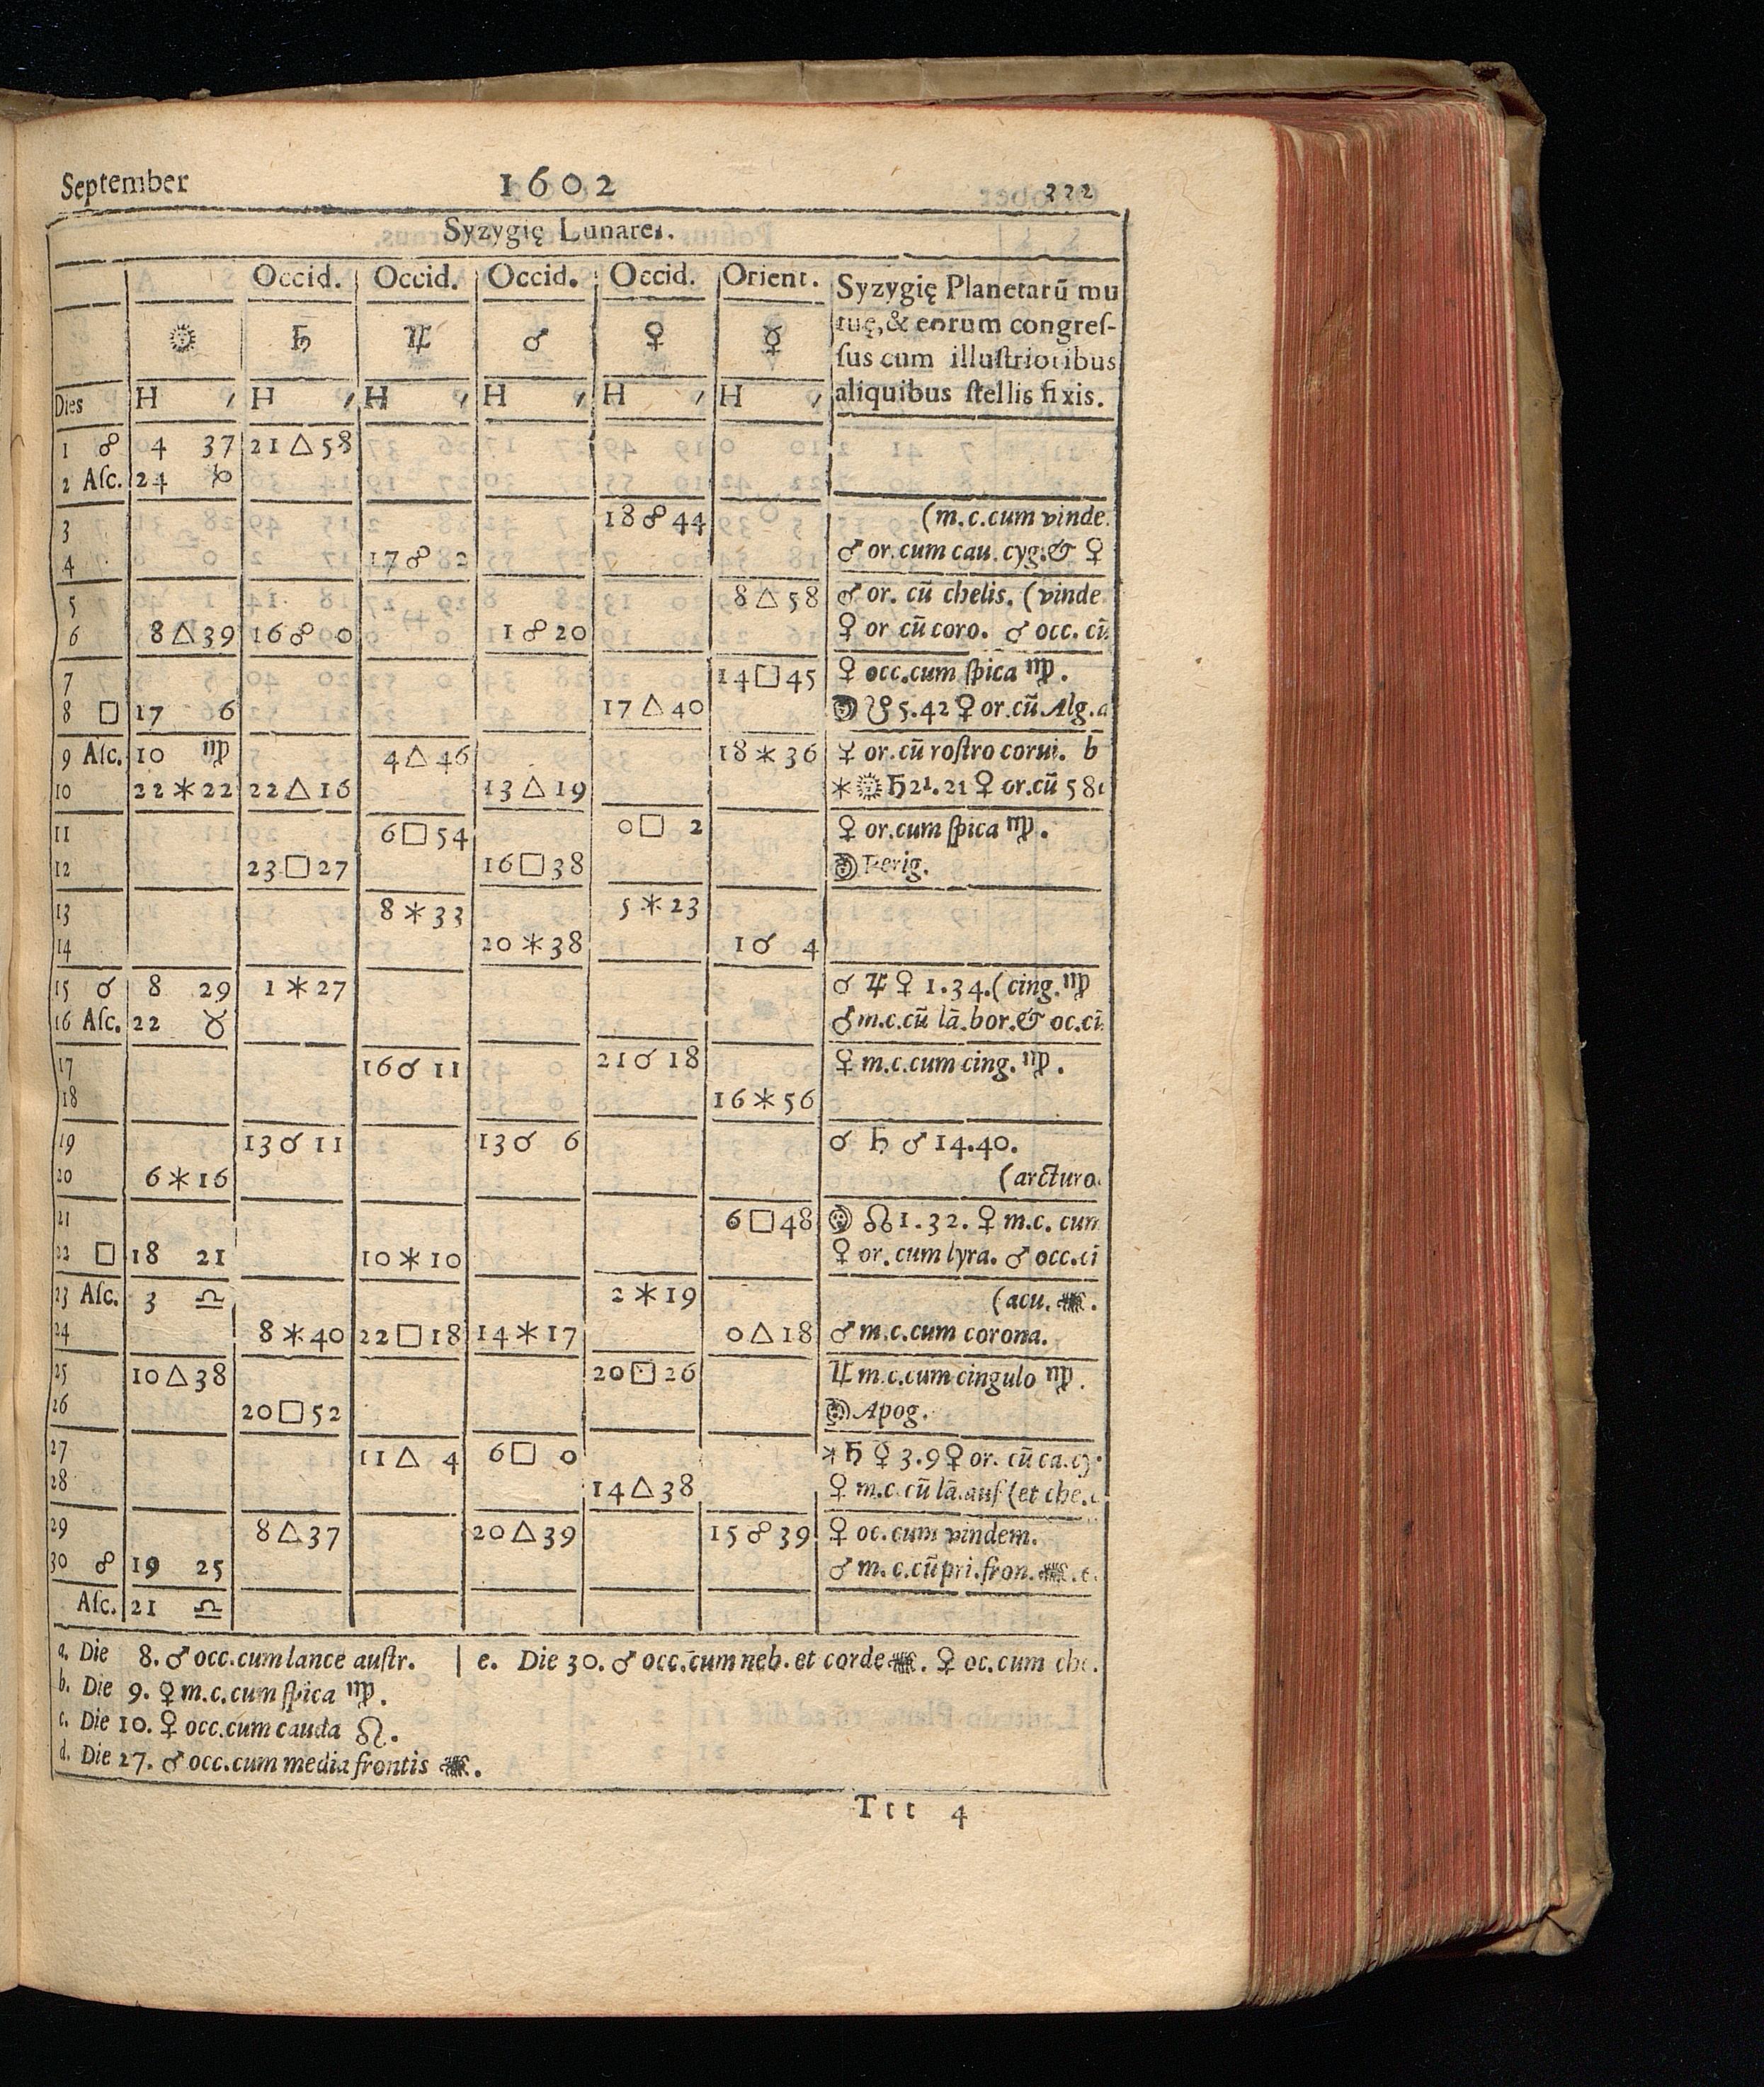 September 1602 332
Syzygię Lunares.
Occid. Occid. Occid. Occid. Orient. Syzygię Planetarū mu
☉ ♄ ♃ ♂ ♀ ☿ tuę, & eorum congreſ-
ſus cum illuſtrioribus
Dies H , H , H , H , H , H , aliquibus ſtellis fixis.
1 ☍ 4 37 21 △ 58
2 Aſc. 24 ♑
3 18 ☍ 44 (m.c.cum vinde.
4 17 ☍ 2 ♂ or.cum cau. cyg.& ♀
5 8 △ 58 ♂ or. cū chelis. (vinde
6 8 △ 39 16 ☍ 0 1 ☍ 20 ♀ or cū coro. ♂ occ. cū
7 14 □ 45 ♀ occ.cum ſpica ♍.
8 □ 17 6 17 △ 40 ☽ ☋ 5.42 ♀ or.cū Alg.a
9 Aſc. 10 ♍ 4 △ 46 18 ⚹ 36 ☿ or.cū roſtro corui. b
10 22 ⚹ 22 22 △ 16 13 △ 19 ⚹ ☉ ♄ 21.21 ♀ or.cū 58c
11 6 □ 54 0 □ 2 ♀ or.cum ſpica ♍.
12 23 □ 27 16 □ 38 ☽ Perig.
13 8 ⚹ 33 5 ⚹ 23
14 20 ⚹ 38 1 ☌ 4
15 ☌ 8 29 1 ⚹ 27 ☌ ♃ ♀ 1.34.(cing.♍
16 Aſc. 22 ♉ ♂ m.c.cū lā.bor.& oc.cū
17 16 ☌ 11 21 ☌ 18 ♀ m.c.cum cing.♍.
18 16 ⚹ 56
19 13 ☌ 11 13 ☌ 6 ☌ ♄ ♂ 14.40.
20 6 ⚹ 16 (arcturo.
21 6 □ 48 ☽ ☊ 1.32. ♀ m.c. cum
22 □ 18 21 10 ⚹ 10 ♀ or.cum lyra. ♂ occ.cū
23 Aſc. 3 ♎ 2 ⚹ 19 (acu. ♏.
24 8 ⚹ 40 22 □ 18 14 ⚹ 17 0 △ 18 ♂ m.c.cum corona.
25 10 △ 38 20 □ 26 ♃ m.c.cum cingulo ♍.
26 20 □ 52 ☽ Apog.
27 11 △ 4 6 □ 0 ⚹ ♄ ☿ 3.9 ♀ or. cū ca.cy.
28 14 △ 38 ♀ m.c.cū lā.auſ (et che.
29 8 △ 37 20 △ 39 15 ☍ 39 ♀ oc.cum vindem.
30 ☍ 19 25 ♂ m.c.cū pri.fron.♏.e.
Aſc. 21 ♎
a. Die 8. ♂ occ.cum lance auſtr. | e. Die 30. ♂ occ.cum neb. et corde ♏. ♀ oc.cum che.
b. Die 9. ♀ m.c.cum ſpica ♍.
c. Die 10. ♀ occ.cum cauda ♌.
d. Die 27. ♂ occ.cum media frontis ♏.
Ttt 4